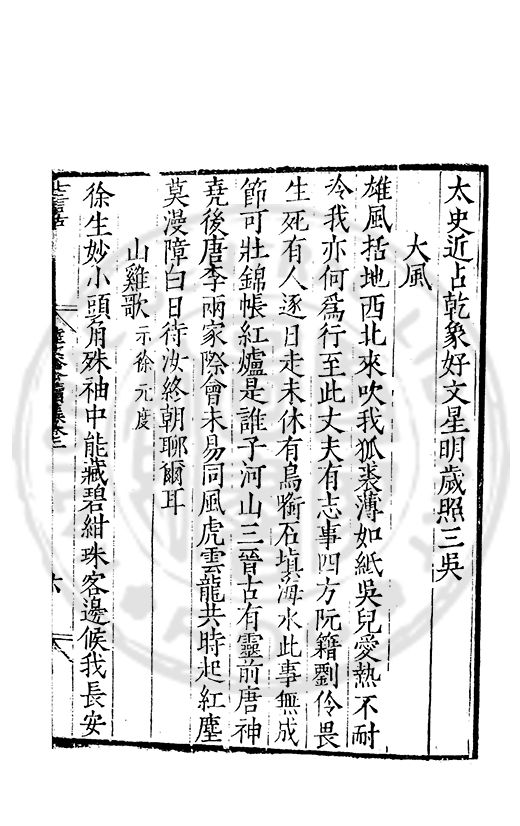 太史近占乾象好文星明歲照三吳
大風
雄風括地西北來吹我狐裘薄如紙吳兒愛熱不耐
冷我亦何為行至此丈夫有志事四方阮籍劉伶畏
生死有人逐日走未休有鳥銜石塡海水此事無成
節可壯錦帳紅爐是誰子河山三晉古有靈前唐神
堯後唐李兩家際會未易同風虎雲龍共時起紅塵
莫漫障白日待汝終朝聊爾耳
山雞歌 示徐元度
徐生妙小頭角殊袖中能藏碧紺珠客邊候我長安
六